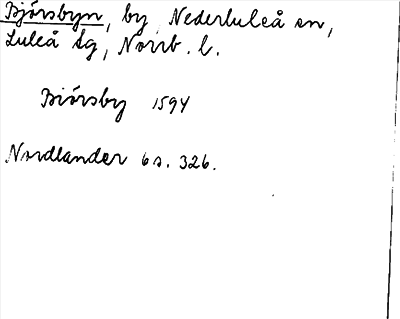 Bjórsbyn, by Nederluleå sn,
Luleå tg, Norrb. l.
Biórsby 1594
Nordlander 6 s. 326.